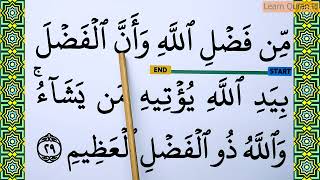 Learn Quran
مِّن فَضۡلِ ٱللَّهِ وَأَنَّ ٱلۡفَضۡلَ
END START
بِيَدِ ٱللَّهِ يُؤۡتِيهِ مَن يَشَآءُۚ
وَٱللَّهُ ذُو ٱلۡفَضۡلِ ٱلۡعَظِيمِ ٢٩